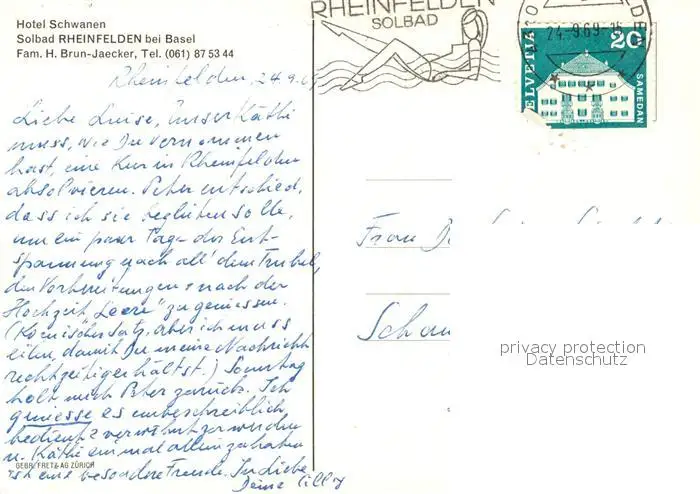 Hotel Schwanen
Solbad RHEINFELDEN bei Basel
Fam. H. Brun-Jaecker, Tel. (061) 87 53 44
RHEINFELDEN
SOLBAD
24.9.69-15
HELVETIA
20
SAMEDAN
Rheinfelden, 24.9.69
Liebe Luise, unser Käthi
muss, wie Du vernommen
hast, eine Kur in Rheinfelden
absolvieren. Peter entschied,
dass ich sie begleiten solle,
um ein paar Tage der Ent-
spannung nach all' dem Trubel,
den Vorbereitungen & nach der
Hochzeit "Leere" zu geniessen.
(Komischer Satz, aber ich muss
eilen, damit Du meine Nachricht
rechtzeitig erhältst.) Sonntag
holt mich Peter zurück. Ich
geniesse es unbeschreiblich,
bedient & verwöhnt zu werden
u. Käthi einmal allein zu haben
ist eine besondere Freude. In Liebe
Deine Cilly
GEBR. FRETZ AG ZÜRICH
Frau
privacy protection
Datenschutz